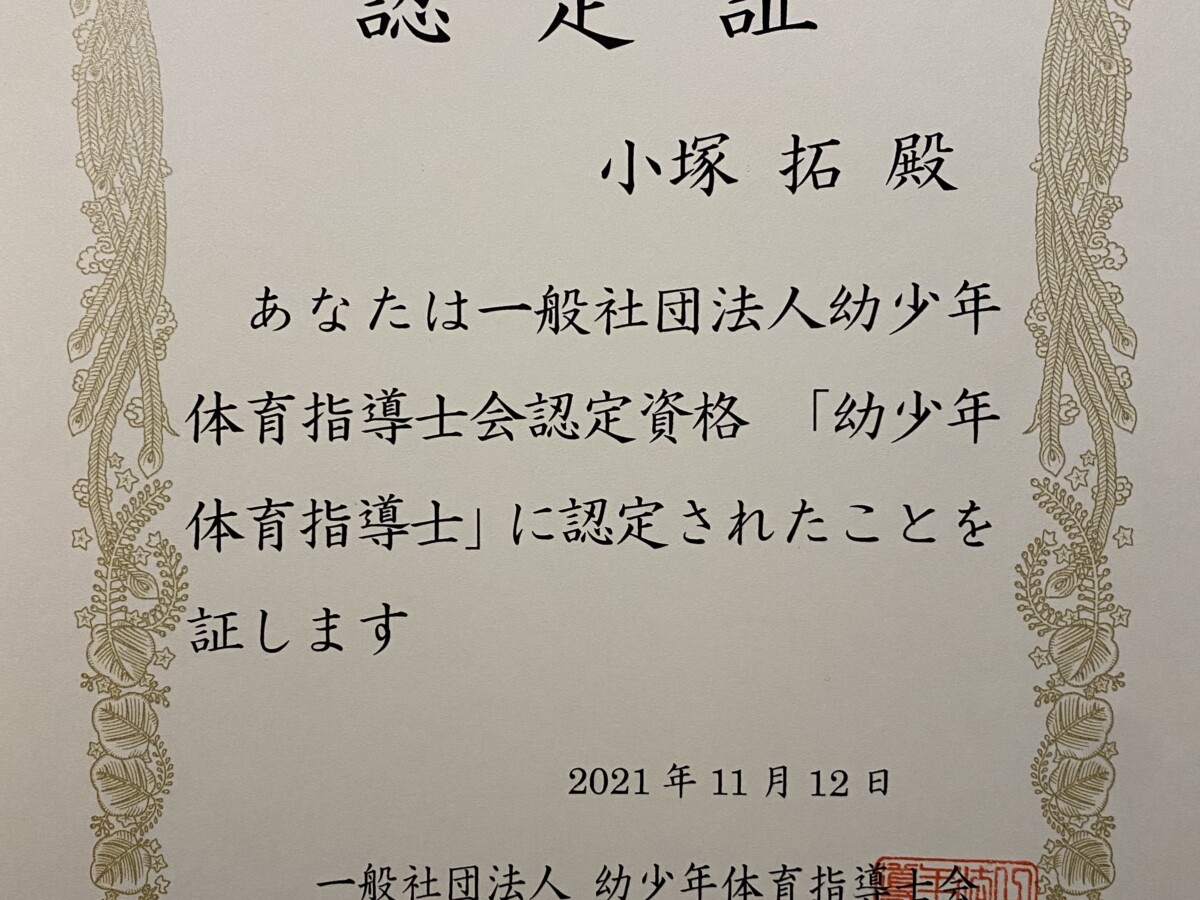 認定証
小塚 拓 殿
あなたは一般社団法人幼少年
体育指導士会認定資格 「幼少年
体育指導士」に認定されたことを
証します
2021年11月12日
一般社団法人 幼少年体育指導士会